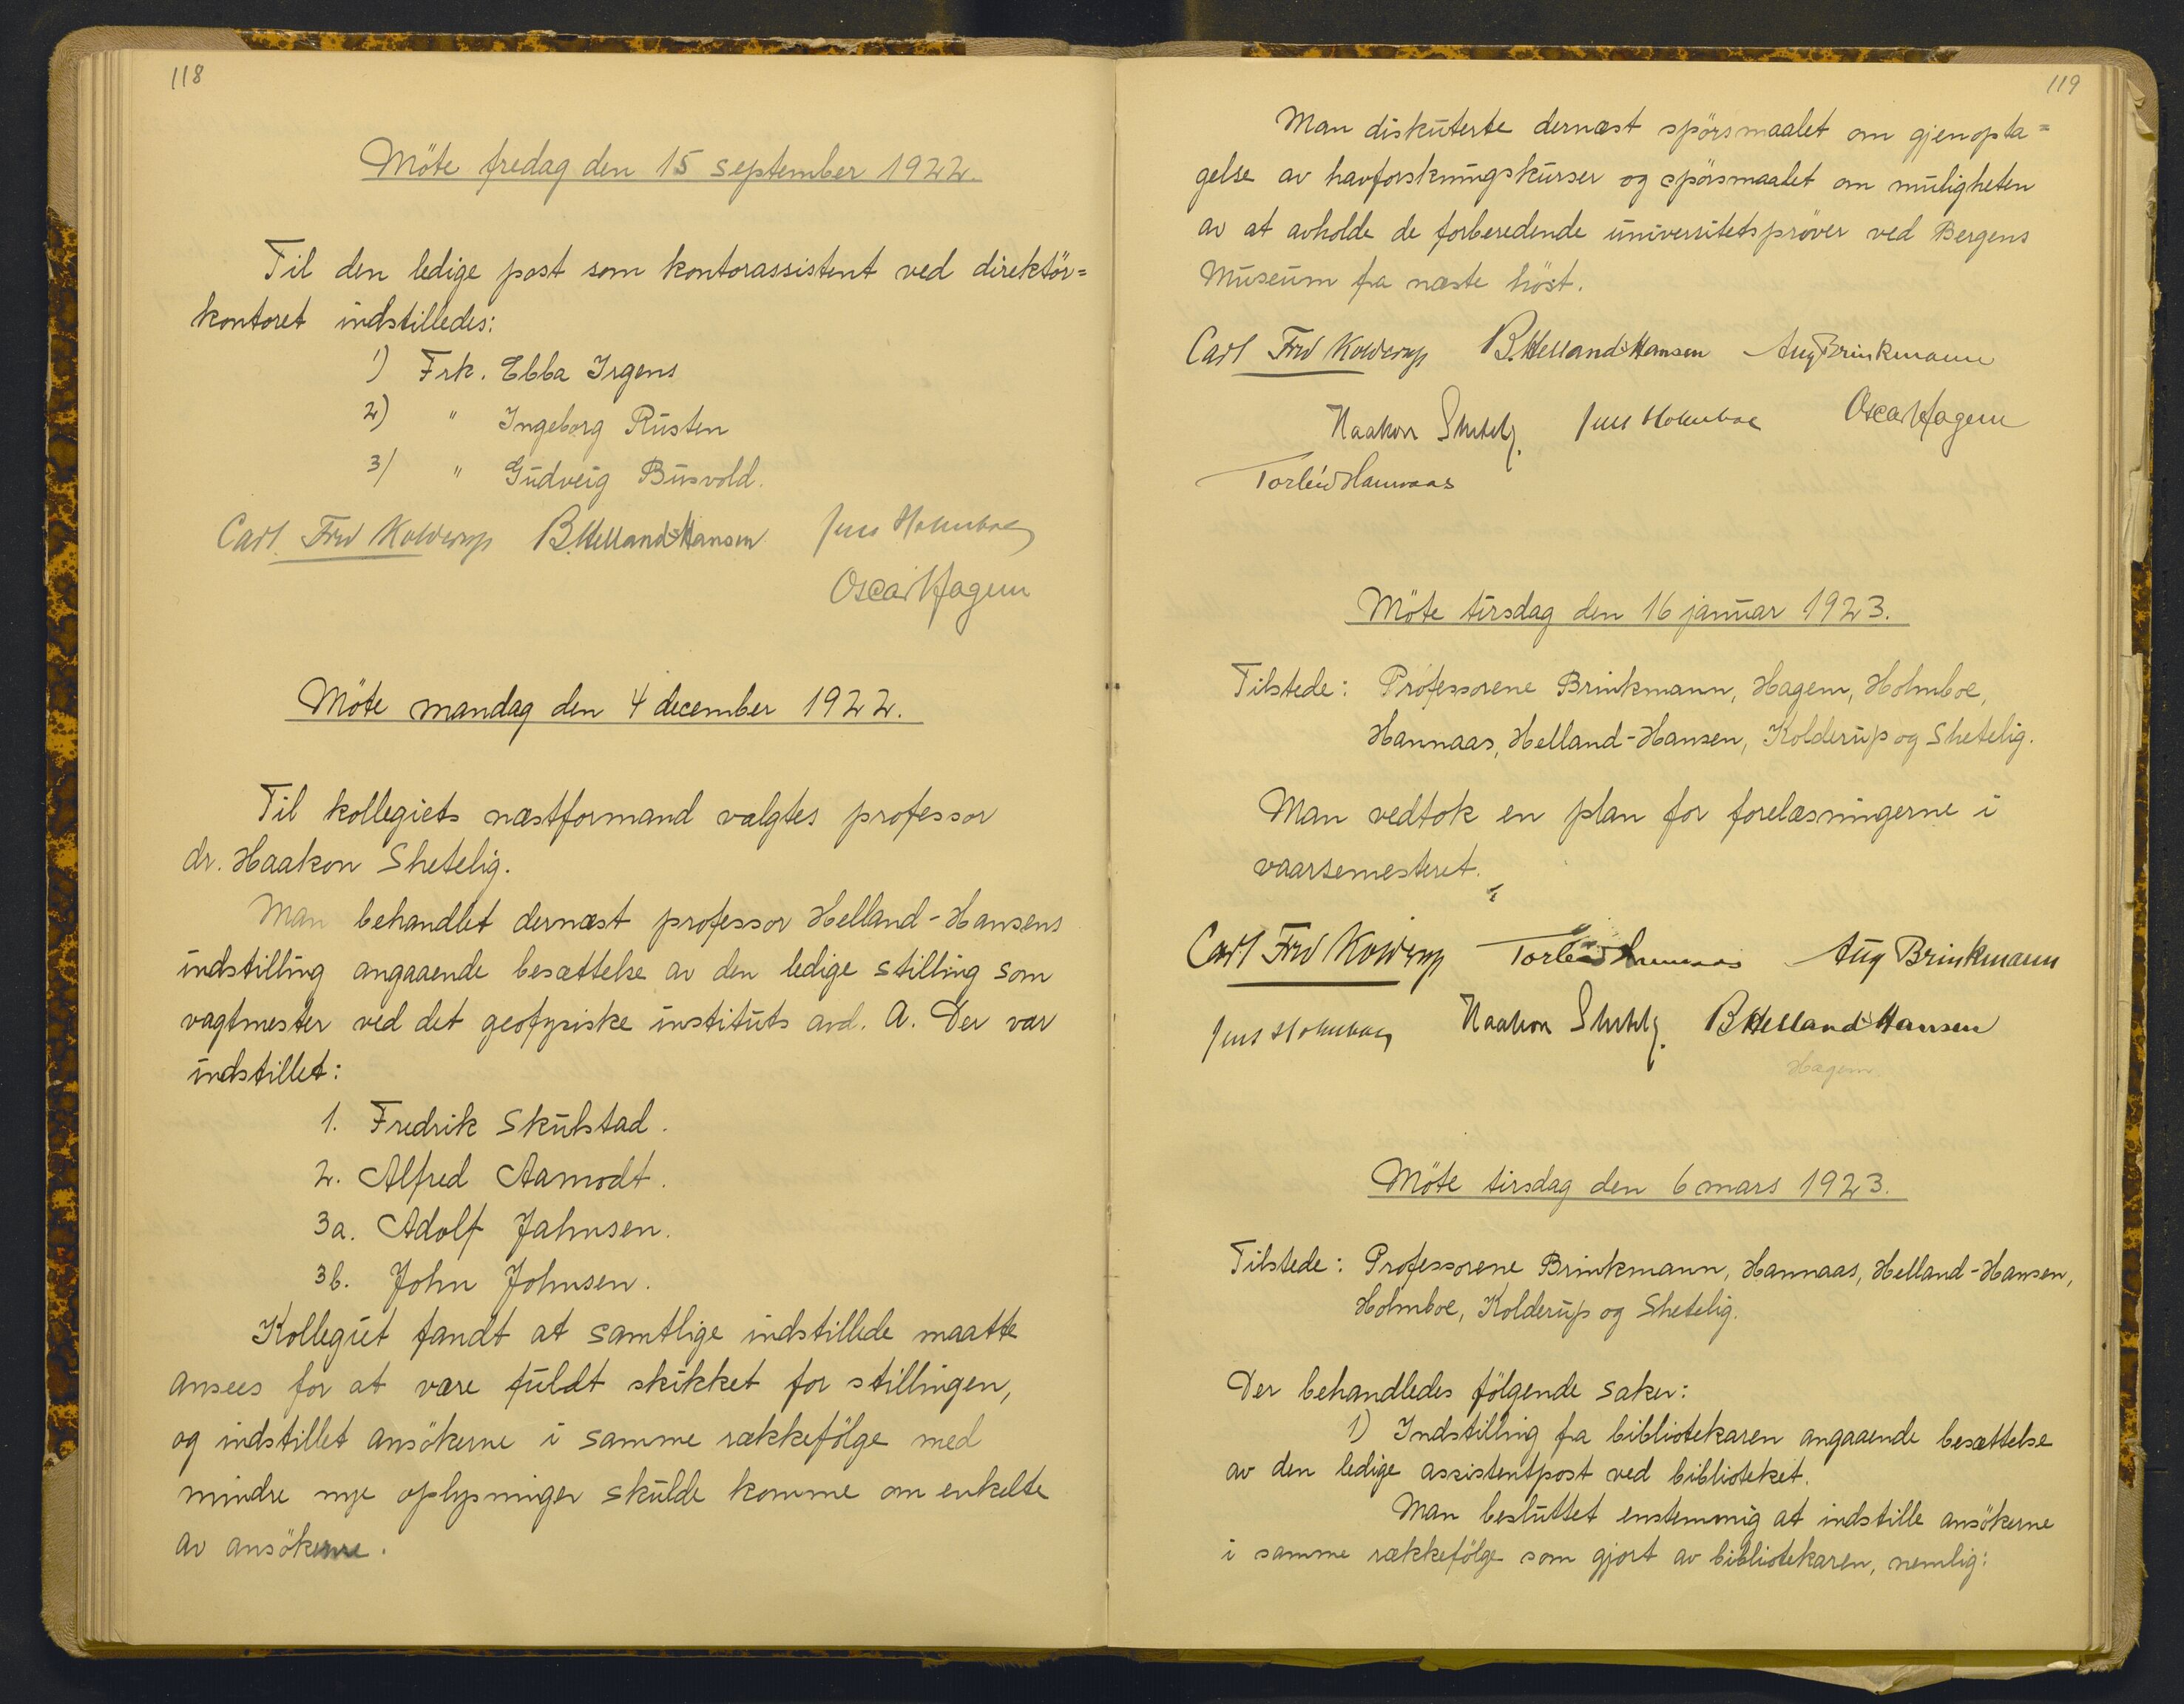 118
Möte fredag den 15 september 1922.
Til den ledige post som kontorassistent ved direktör=
kontoret indstilledes:
1) Frk. Ebba Irgens
2) " Ingeborg Rusten
3) " Gudveig Busvold.
Carl Fred Kolderup B. Helland-Hansen Jens Holmboe
Oscar Hagem
Möte mandag den 4 december 1922.
Til kollegiets næstformand valgtes professor
dr. Haakon Shetelig.
Man behandlet dernæst professor Helland-Hansens
indstilling angaaende besættelse av den ledige stilling som
vagtmester ved det geofysiske instituts avd. A. Der var
indstillet:
1. Fredrik Skulstad.
2. Alfred Aamodt.
3a. Adolf Jahnsen.
3b. John Johnsen.
Kollegiet fandt at samtlige indstillede maatte
ansees for at være fuldt skikket for stillingen,
og indstillet ansökerne i samme rækkefölge med
mindre nye oplysninger skulde komme om enkelte
av ansökerne.
119
Man diskuterte dernæst spörsmaalet om gjenopta=
gelse av havforskningskurser og spörsmaalet om muligheten
av at avholde de forberedende universitetspröver ved Bergens
Museum fra næste höst.
Carl Fred Kolderup B. Helland-Hansen Aug Brinkmann
Haakon Shetelig. Jens Holmboe Oscar Hagem
Torleiv Hannaas
Möte tirsdag den 16 januar 1923.
Tilstede: Professorene Brinkmann, Hagem, Holmboe,
Hannaas, Helland-Hansen, Kolderup og Shetelig.
Man vedtok en plan for forelæsningerne i
vaarsemesteret.
Carl Fred Kolderup Torleiv Hannaas Aug Brinkmann
Jens Holmboe Haakon Shetelig. B Helland-Hansen
Hagem
Möte tirsdag den 6 mars 1923.
Tilstede: Professorene Brinkmann, Hannaas, Helland-Hansen,
Holmboe, Kolderup og Shetelig.
Der behandledes fölgende saker:
1) Indstilling fra bibliotekaren angaaende besættelse
av den ledige assistentpost ved biblioteket.
Man besluttet enstemmig at indstille ansökerne
i samme rækkefölge som gjort av bibliotekaren, nemlig: